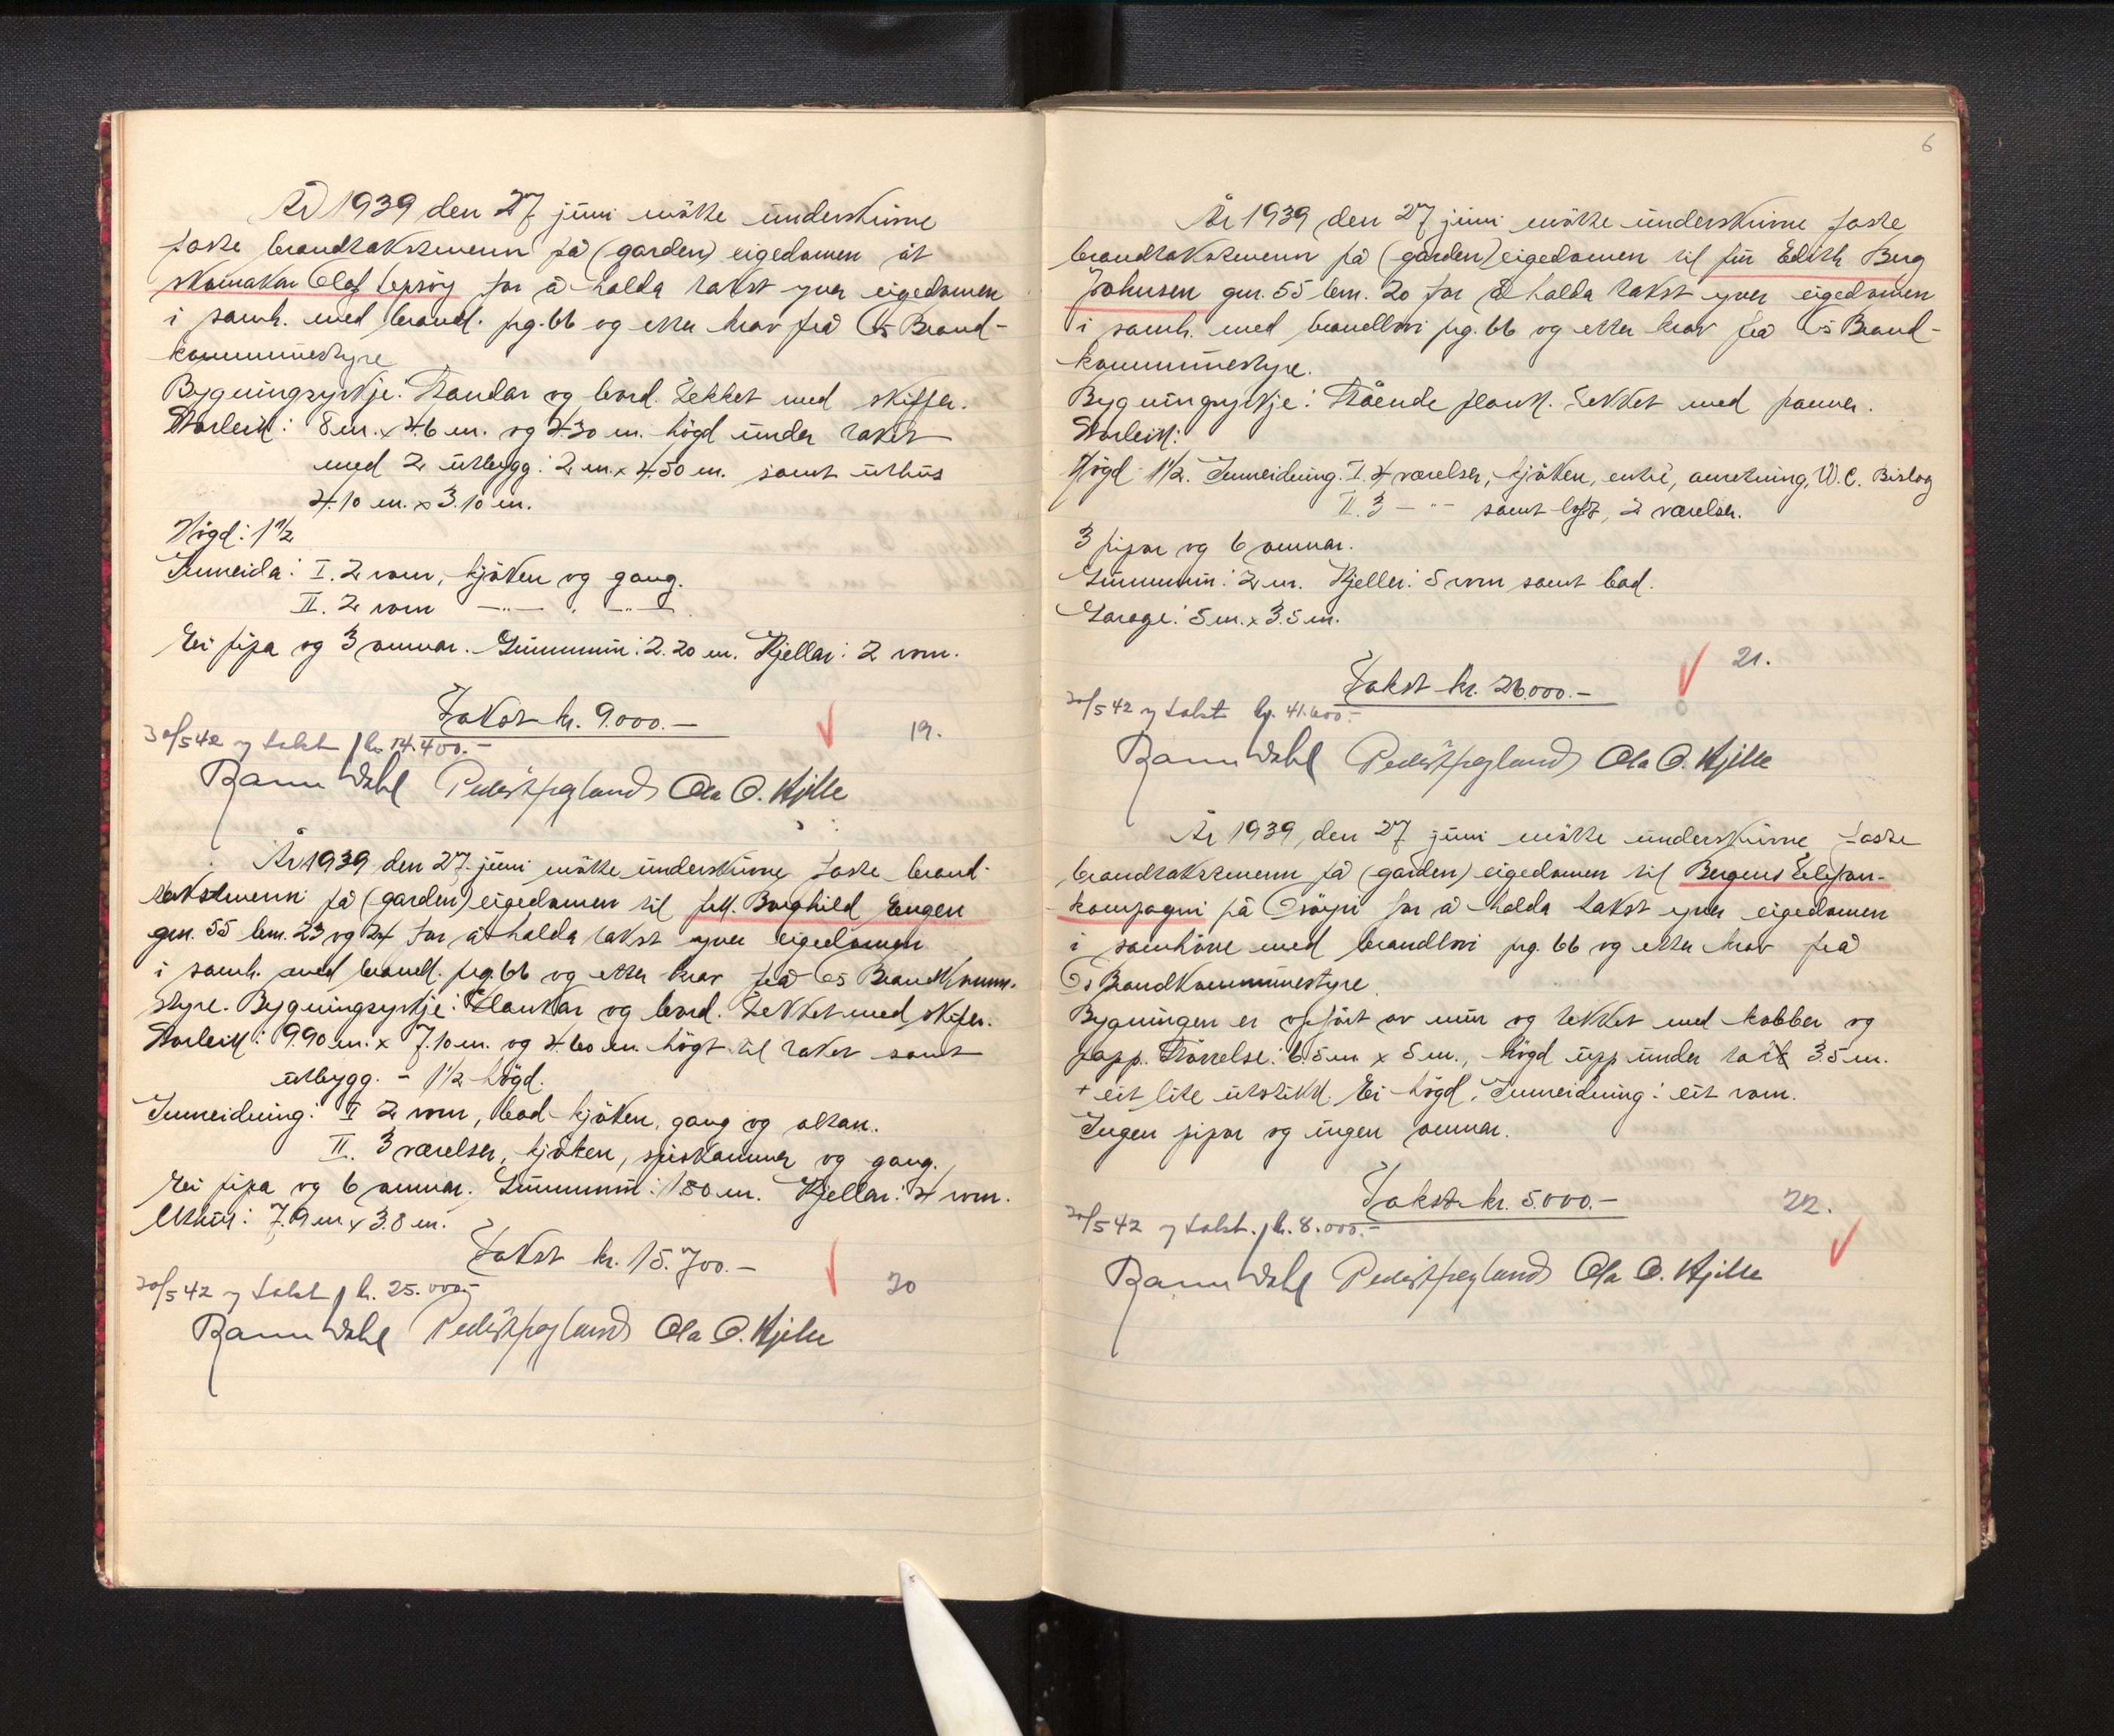 År 1939 den 27 juni mötte underskrivne
faste brandtakstmenn på (garden) eigedomen åt
skomakar Olaf Lepsöy for å halda takst yver eigedomen
i samh. med brandl. prg. 66 og etter krav frå Os Brand-
kommunestyre
Bygningsyrkje: Standar og bord. Tekket med skiffer.
Storleik: 8 m. x 4.6 m. og 4.30 m. högd under taket
med 2 utbygg: 2 m. x 4.50 m. samt uthus
4.10 m. x 3.10 m.
Högd: 1 1/2
Inneida: I. 2 rom, kjöken og gang.
II. 2 rom —"— , —"—
Ei pipa og 3 omnar. Grunnmur: 2.20 m. Kjellar: 2 rom.
Takst kr. 9.000.—
30/5 42 ny takst kr. 14.400.—
19.
Bann Dahl Peder Hegland Ola O. Hjelle
År 1939 den 27. juni mötte underskrivne faste brand-
takstmenn på (garden) eigedomen til frk. Borghild Engen
gnr. 55 bnr. 23 og 24 for å halda takst yver eigedomen
i samh. med brandl. prg. 66 og etter krav frå Os Brandkomm.
styre. Bygningsyrkje: Plankar og bord. Tekket med skifer.
Storleik: 9.90 m. x 7.10 m. og 4.60 m. högt til taket samt
utbygg. - 1 1/2 högd.
Inneidning: I 2 rom, bad - kjöken, gang og altan.
II. 3 værelser, kjöken, spiskammer og gang.
Ei pipa og 6 omnar. Grunnmur: 1.80 m. Kjellar: 4 rom.
Uthus: 7.9 m x 3.8 m.
Takst kr. 15.700.—
30/5 42 ny takst kr. 25.000,-
20
Bann Dahl Peder Hegland Ola O. Hjelle
6
År 1939, den 27 juni mötte underskrivne faste
brandtakstmenn på (garden) eigedomen til fru Edith Berg
Johnsen gnr. 55 bnr. 20 for å halda takst yver eigedomen
i samh. med brandlovi prg. 66 og etter krav frå Os Brand-
kommunestyre.
Bygningsyrkje: Stående plank. Tekket med panner.
Storleik:
Högd 1 1/2. Inneidning. I. 4 værelser, kjöken, entré, anretning, W.C. Bislag
II. 3 —"— samt loft, 2 værelser.
3 pipar og 6 omnar.
Grunnmur: 2 m. Kjeller: 5 rom samt bad.
Garage: 5 m. x 3.5 m.
21.
Takst kr. 26.000.—
30/5 42 ny takst kr. 41.600.-
Bann Dahl Peder Hegland Ola O. Hjelle
År 1939, den 27 juni mötte underskrivne faste
brandtakstmenn på (garden) eigedomen til Bergens Telefon-
kompagni på Osöyri for å halda takst yver eigedomen
i samhöve med brandlovi prg. 66 og etter krav frå
Os Brandkommunestyre.
Bygningen er opfört av mur og tekket med kobber og
papp. Störrelse: 6.5 m x 5 m., högd upp under tak 3.5 m.
+ eit lite utstikk. Ei högd. Inneidning: eit rom.
Ingen pipar og ingen omnar.
Takst kr. 5.000.—
22.
30/5 42 ny takst. kr. 8.000.-
Bann Dahl Peder Hegland Ola O. Hjelle